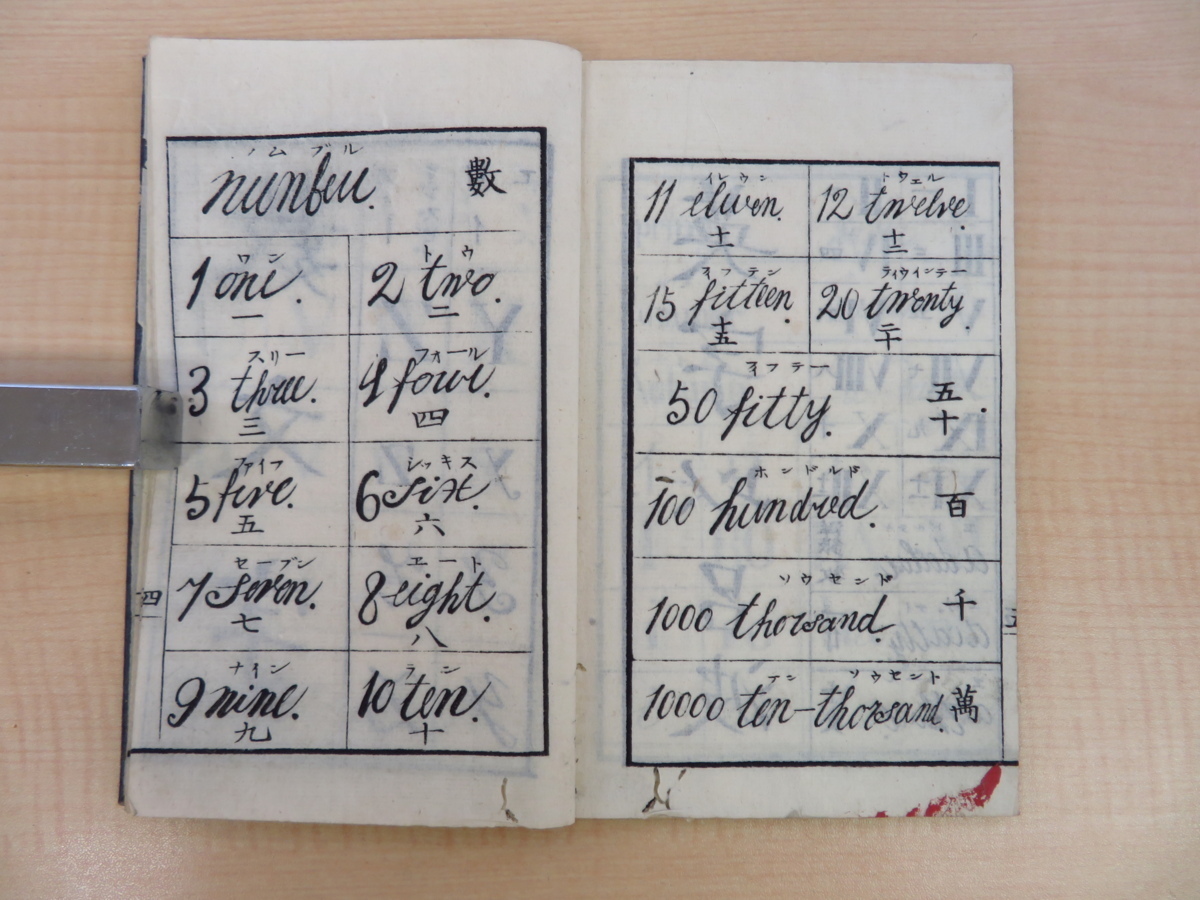 ノムブル
nunbeu. 數
ワン
1 one.
一
トウ
2 two.
二
スリー
3 three.
三
フォール
4 foure.
四
ファイフ
5 five.
五
シッキス
6 sixt.
六
セーブン
7 seven.
七
エート
8 eight.
八
ナイン
9 nine.
九
テン
10 ten.
十
四
イレウン
11 elwen.
十一
トウェル
12 twelve.
十二
フィフテン
15 fitteen.
十五
トウインテー
20 twenty.
二十
フィフテー
50 fitty. 五十.
ホンドルド
100 hundred. 百
ソウセンド
1000 thorsand. 千
テン ソウセント
10000 ten-thorsand. 萬